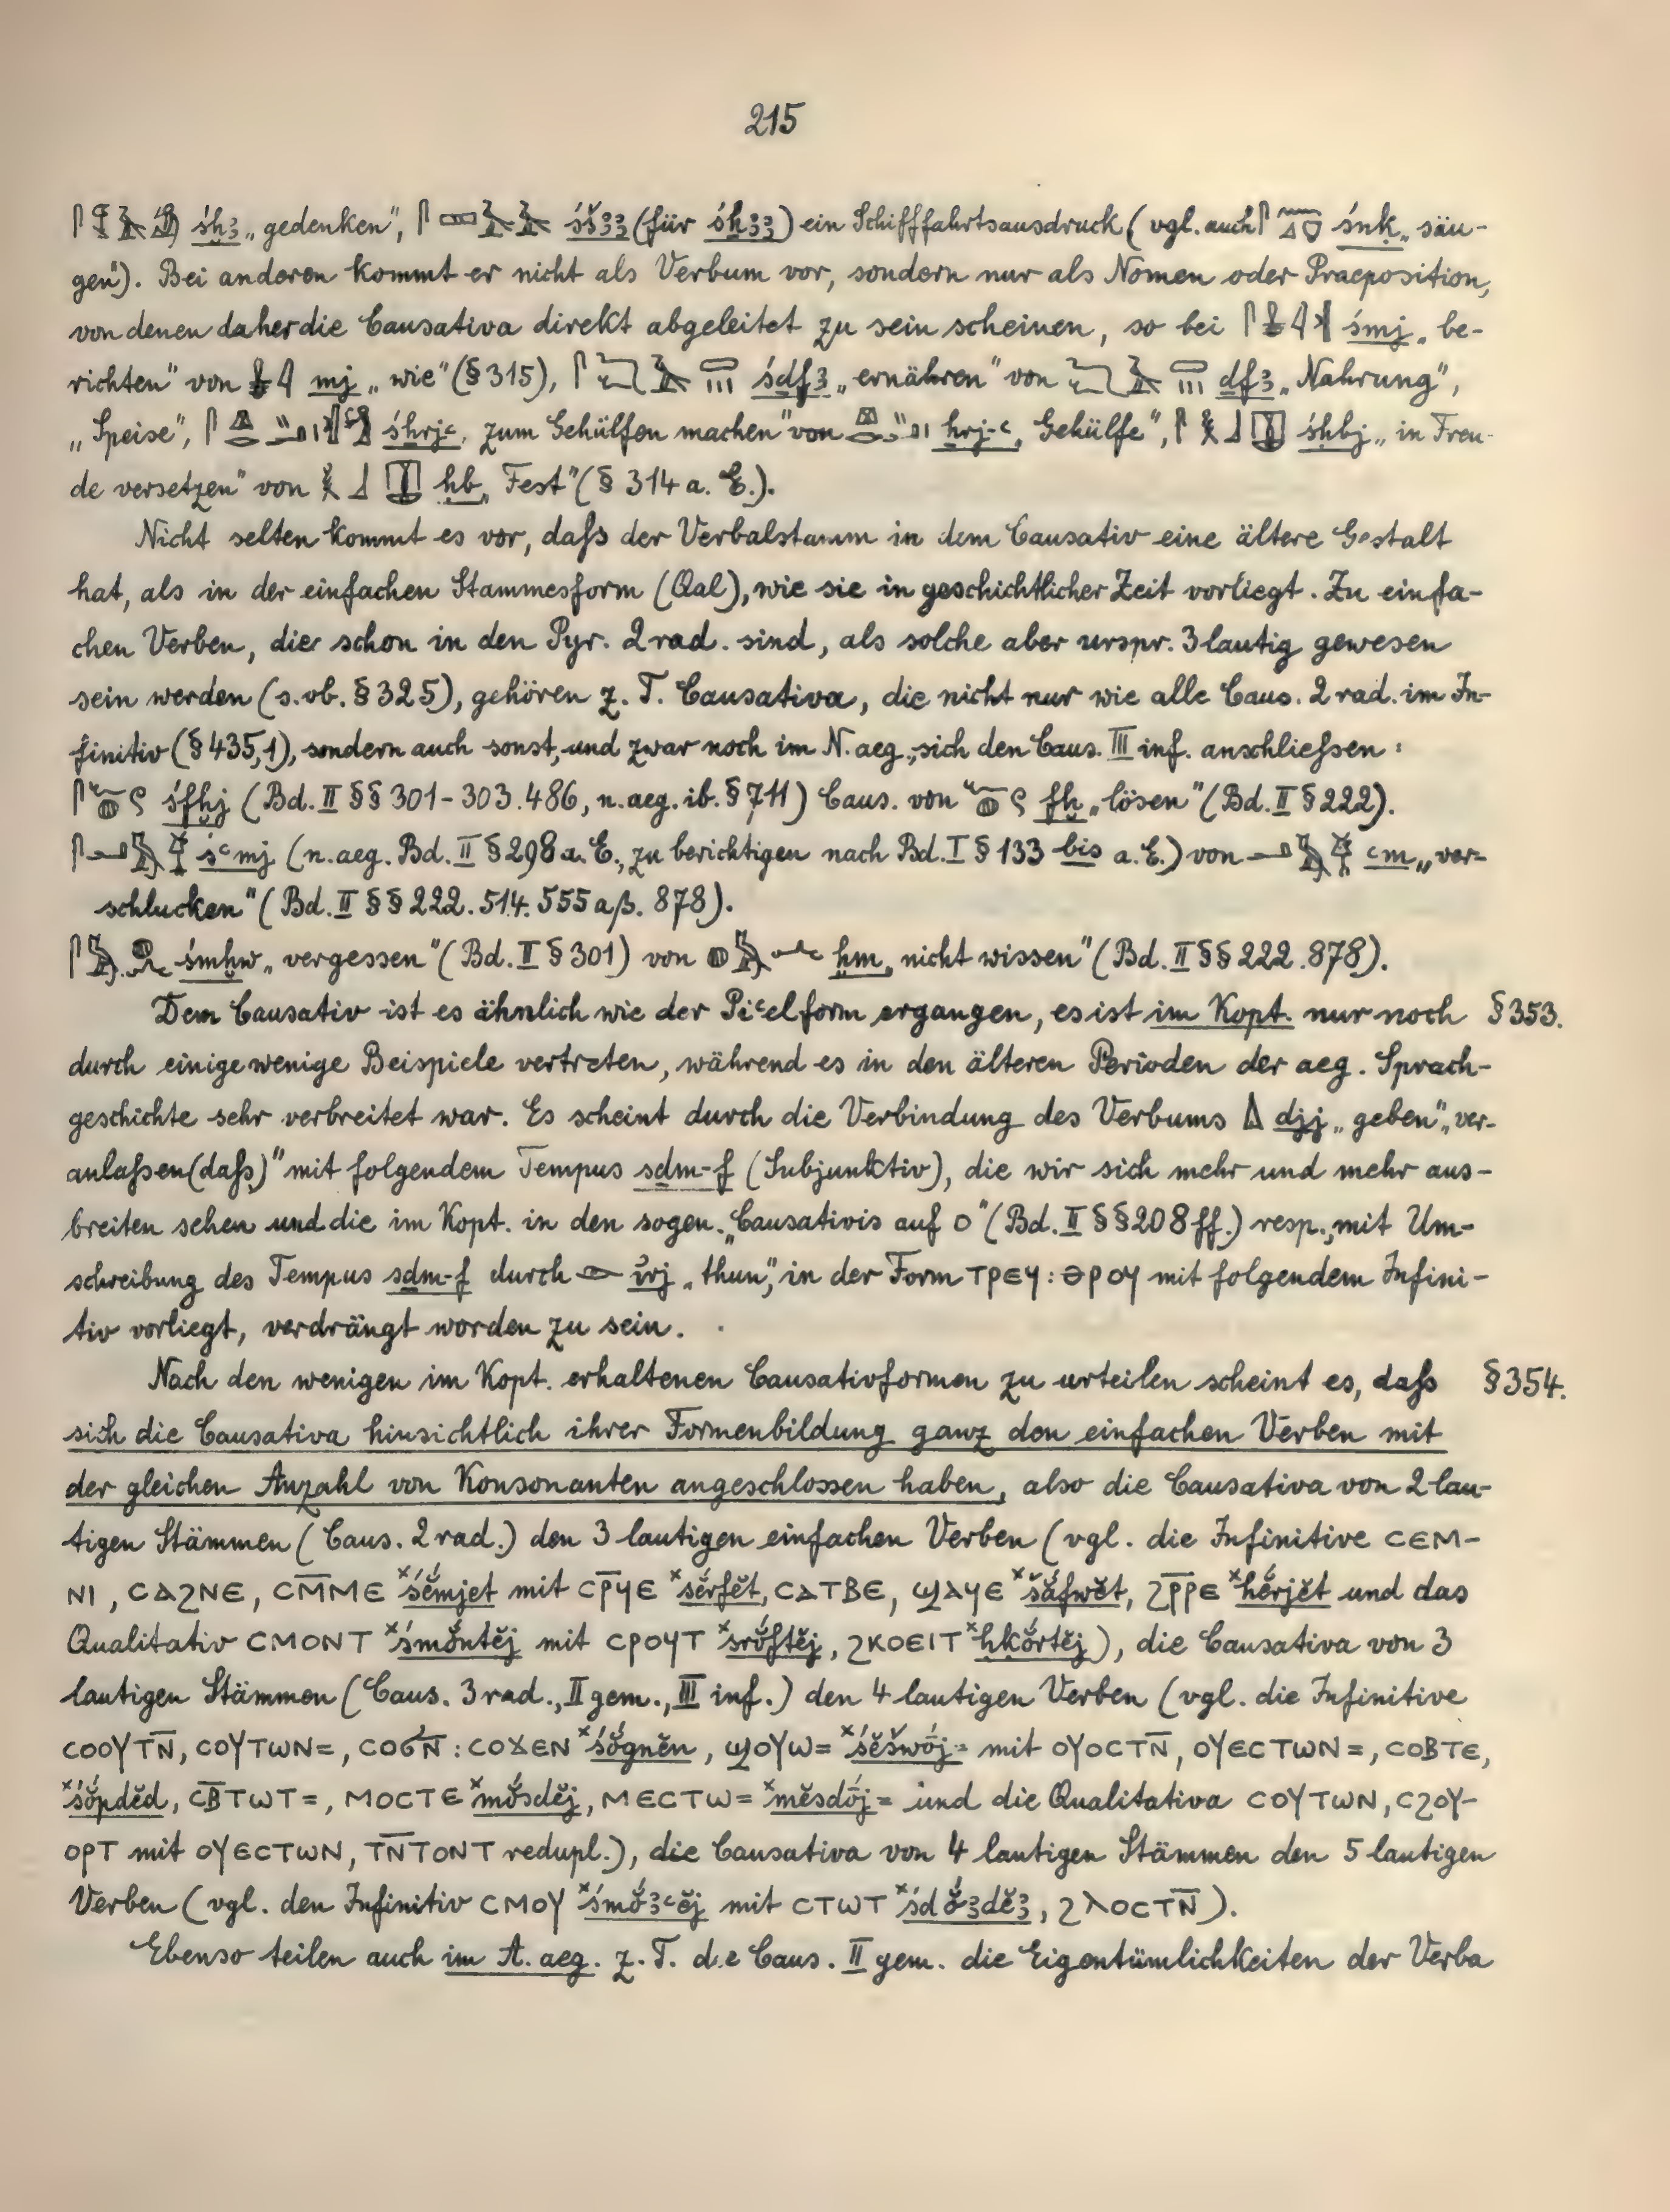 215
śḫꜣ „gedenken“, śšꜣꜣ (für śḫꜣꜣ) ein Schifffahrtsausdruck (vgl. auch śnḳ „säu-
gen“). Bei anderen kommt er nicht als Verbum vor, sondern nur als Nomen oder Praeposition,
von denen daher die Causativa direkt abgeleitet zu sein scheinen, so bei śmj „be-
richten“ von mj „wie“ (§ 315), śdfꜣ „ernähren“ von df̱ꜣ „Nahrung“,
„Speise“, śḥrjꜥ „zum Gehülfen machen“ von ḥrj-ꜥ „Gehülfe“, śḥbj „in Freu-
de versetzen“ von ḥb „Fest“ (§ 314 a. E.).
Nicht selten kommt es vor, daſs der Verbalstamm in dem Causativ eine ältere Gestalt
hat, als in der einfachen Stammesform (Qal), wie sie in geschichtlicher Zeit vorliegt. Zu einfa-
chen Verben, die schon in den Pyr. 2rad. sind, als solche aber urspr. 3lautig gewesen
sein werden (s. ob. § 325), gehören z. T. Causativa, die nicht nur wie alle Caus. 2rad. im In-
finitiv (§ 435,1), sondern auch sonst, und zwar noch im N. aeg., sich den Caus. III inf. anschlieſsen:
śfḫj (Bd. II §§ 301-303. 486, n. aeg. ib. § 711) Caus. von fḫ „lösen“ (Bd. II § 222).
śꜥmj (n. aeg. Bd. II § 298 a. E., zu berichtigen nach Bd. I § 133 bis a. E.) von ꜥm „ver-
schlucken“ (Bd. II §§ 222. 514. 555 aβ. 878).
śmḫw „vergessen“ (Bd. II § 301) von ḫm „nicht wissen“ (Bd. II §§ 222. 878).
Dem Causativ ist es ähnlich wie der Piꜥelform ergangen, es ist im Kopt. nur noch § 353.
durch einige wenige Beispiele vertreten, während es in den älteren Perioden der aeg. Sprach-
geschichte sehr verbreitet war. Es scheint durch die Verbindung des Verbums djj „geben“, „ver-
anlaſsen (daſs)“ mit folgendem Tempus sḏm-f (Subjunktiv), die wir sich mehr und mehr aus-
breiten sehen und die im Kopt. in den sogen. „Causativis auf o“ (Bd. II §§ 208 ff.) resp., mit Um-
schreibung des Tempus sḏm-f durch ꞽrj „thun“, in der Form ⲧⲣⲉϥ : ⲑⲣⲟϥ mit folgendem Infini-
tiv vorliegt, verdrängt worden zu sein.
Nach den wenigen im Kopt. erhaltenen Causativformen zu urteilen scheint es, daſs § 354.
sich die Causativa hinsichtlich ihrer Formenbildung ganz den einfachen Verben mit
der gleichen Anzahl von Konsonanten angeschlossen haben, also die Causativa von 2lau-
tigen Stämmen (Caus. 2rad.) den 3lautigen einfachen Verben (vgl. die Infinitive ⲥⲉⲙ-
ⲛⲓ, ⲥⲁϩⲛⲉ, ⲥⲙ̅ⲙⲉ ˣśĕ́mjet mit ⲥⲣ̅ϥⲉ ˣsĕ́rfĕt, ⲥⲁⲧⲃⲉ, ϣⲁϥⲉ ˣšắfwĕt, ϩⲣ̅ⲣⲉ ˣḥĕ́rjĕt und das
Qualitativ ⲥⲙⲟⲛⲧ ˣśmŏ́ntĕj mit ⲥⲣⲟϥⲧ ˣsrŏ́ftĕj, ϩⲕⲟⲉⲓⲧ ˣḥkŏ́rtĕj), die Causativa von 3
lautigen Stämmen (Caus. 3rad., II gem., III inf.) den 4lautigen Verben (vgl. die Infinitive
ⲥⲟⲟⲩⲧⲛ̅, ⲥⲟⲩⲧⲱⲛ=, ⲥⲟϭⲛ̅ : ⲥⲟϫⲉⲛ ˣśŏ́gnĕn, ϣⲟⲩⲱ= ˣśĕšwṓj= mit ⲟⲩⲟⲥⲧⲛ̅, ⲟⲩⲉⲥⲧⲱⲛ=, ⲥⲟⲃⲧⲉ,
ˣśŏ́pdĕd, ⲥⲃ̅ⲧⲱⲧ=, ⲙⲟⲥⲧⲉ ˣmŏ́sdĕj, ⲙⲉⲥⲧⲱ= ˣmĕsdṓj= und die Qualitativa ⲥⲟⲩⲧⲱⲛ, ⲥϩⲟⲩ-
ⲟⲣⲧ mit ⲟⲩⲉⲥⲧⲱⲛ, ⲧⲛ̅ⲧⲟⲛⲧ redupl.), die Causativa von 4 lautigen Stämmen den 5 lautigen
Verben (vgl. den Infinitiv ⲥⲙⲟⲩ ˣśmŏ́ꜣꜥĕj mit ⲥⲧⲱⲧ ˣśdŏ́ꜣdĕꜣ, ϩⲗⲟⲥⲧⲛ̅).
Ebenso teilen auch im A. aeg. z. T. die Caus. II gem. die Eigentümlichkeiten der Verba